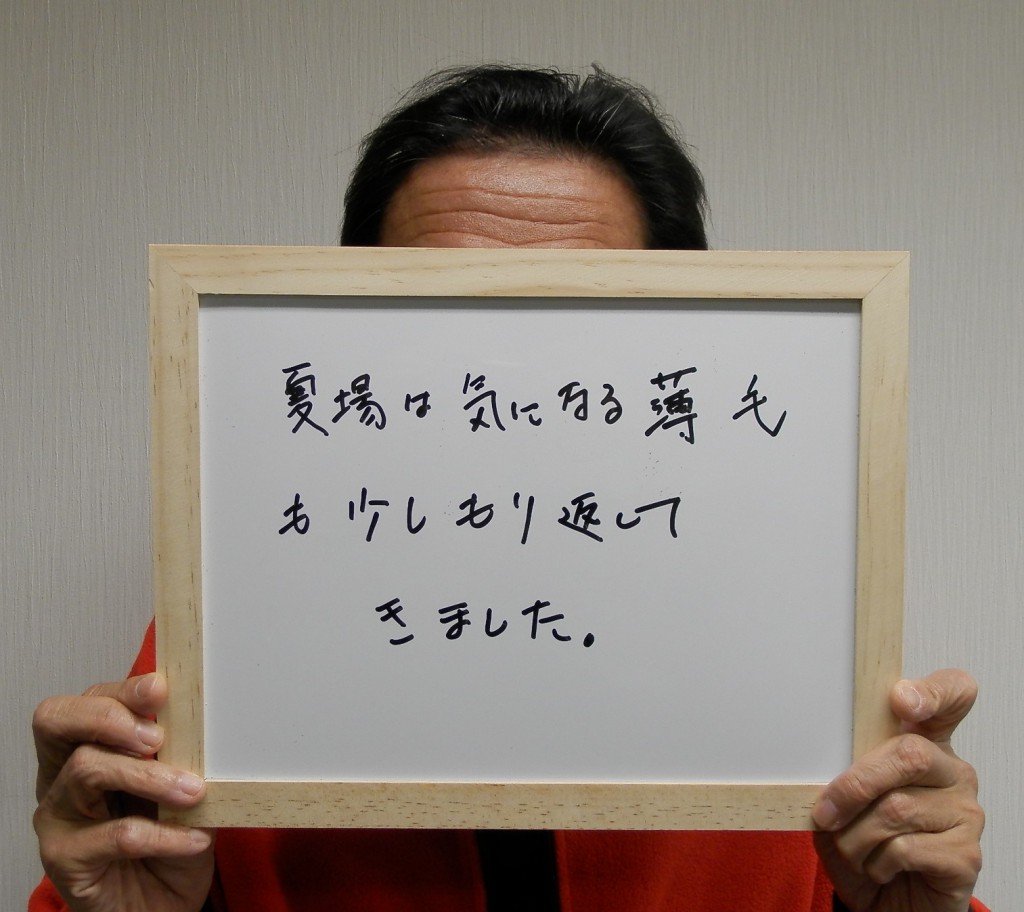 夏場は気になる薄毛
も少しもり返して
きました。